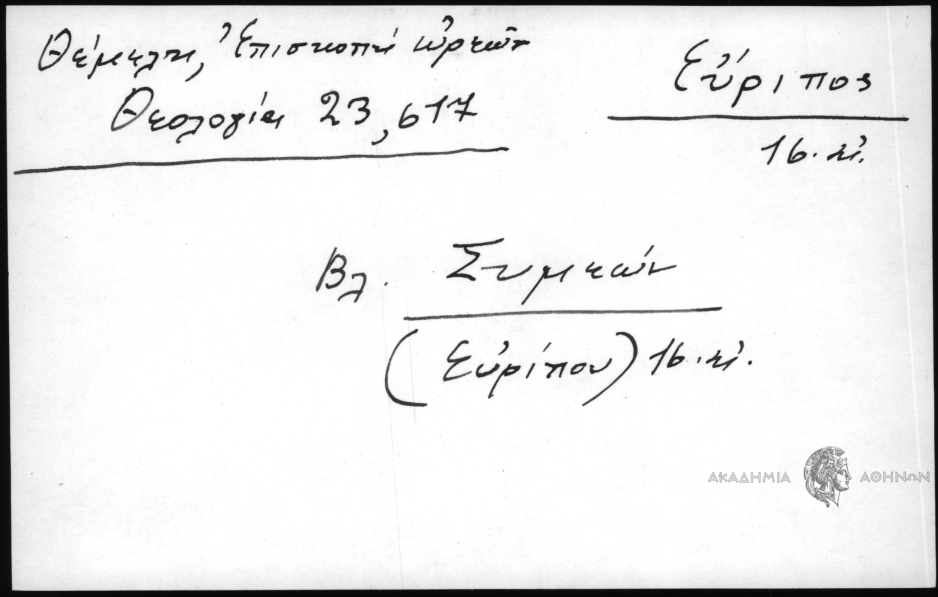 Θέμελη, Ἐπισκοπή Ὠρεῶν
Θεολογία 23, 617
Εὔριπος
16. αἰ.
Βλ. Συμεών
(Εὐρίπου) 16. αἰ.
ΑΚΑΔΗΜΙΑ ΑΘΗΝΩΝ